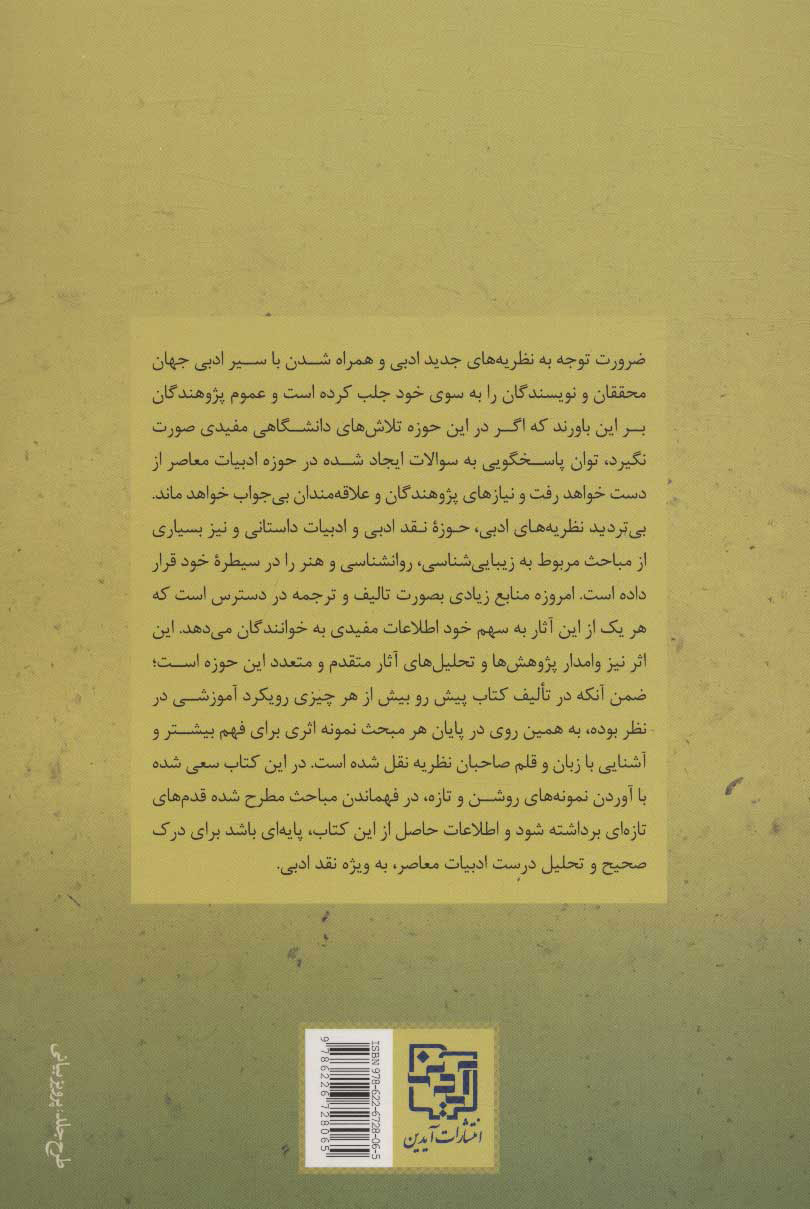 ضرورت توجه به نظریه‌های جدید ادبی و همراه شدن با سیر ادبی جهان
محققان و نویسندگان را به سوی خود جلب کرده است و عموم پژوهندگان
بر این باورند که اگر در این حوزه تلاش‌های دانشگاهی مفیدی صورت
نگیرد، توان پاسخگویی به سوالات ایجاد شده در حوزه ادبیات معاصر از
دست خواهد رفت و نیازهای پژوهندگان و علاقه‌مندان بی‌جواب خواهد ماند.
بی‌تردید نظریه‌های ادبی، حوزهٔ نقد ادبی و ادبیات داستانی و نیز بسیاری
از مباحث مربوط به زیبایی‌شناسی، روانشناسی و هنر را در سیطرهٔ خود قرار
داده است. امروزه منابع زیادی بصورت تالیف و ترجمه در دسترس است که
هر یک از این آثار به سهم خود اطلاعات مفیدی به خوانندگان می‌دهد. این
اثر نیز وامدار پژوهش‌ها و تحلیل‌های آثار متقدم و متعدد این حوزه است؛
ضمن آنکه در تألیف کتاب پیش رو بیش از هر چیزی رویکرد آموزشی در
نظر بوده، به همین روی در پایان هر مبحث نمونه اثری برای فهم بیشتر و
آشنایی با زبان و قلم صاحبان نظریه نقل شده است. در این کتاب سعی شده
با آوردن نمونه‌های روشن و تازه، در فهماندن مباحث مطرح شده قدم‌های
تازه‌ای برداشته شود و اطلاعات حاصل از این کتاب، پایه‌ای باشد برای درک
صحیح و تحلیل درست ادبیات معاصر، به ویژه نقد ادبی.
آیدین
انتشارات آیدین
ISBN 978-622-6728-06-5
9 786226 728065
طرح جلد: پرویز بیانی